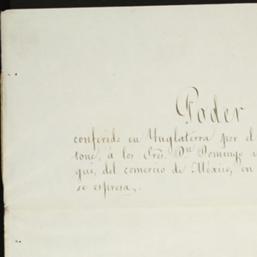 Poder
conferido en Ynglaterra por el
tone, á los Sres. Dn. Domingo
qui, del comercio de México, en
se espresa.